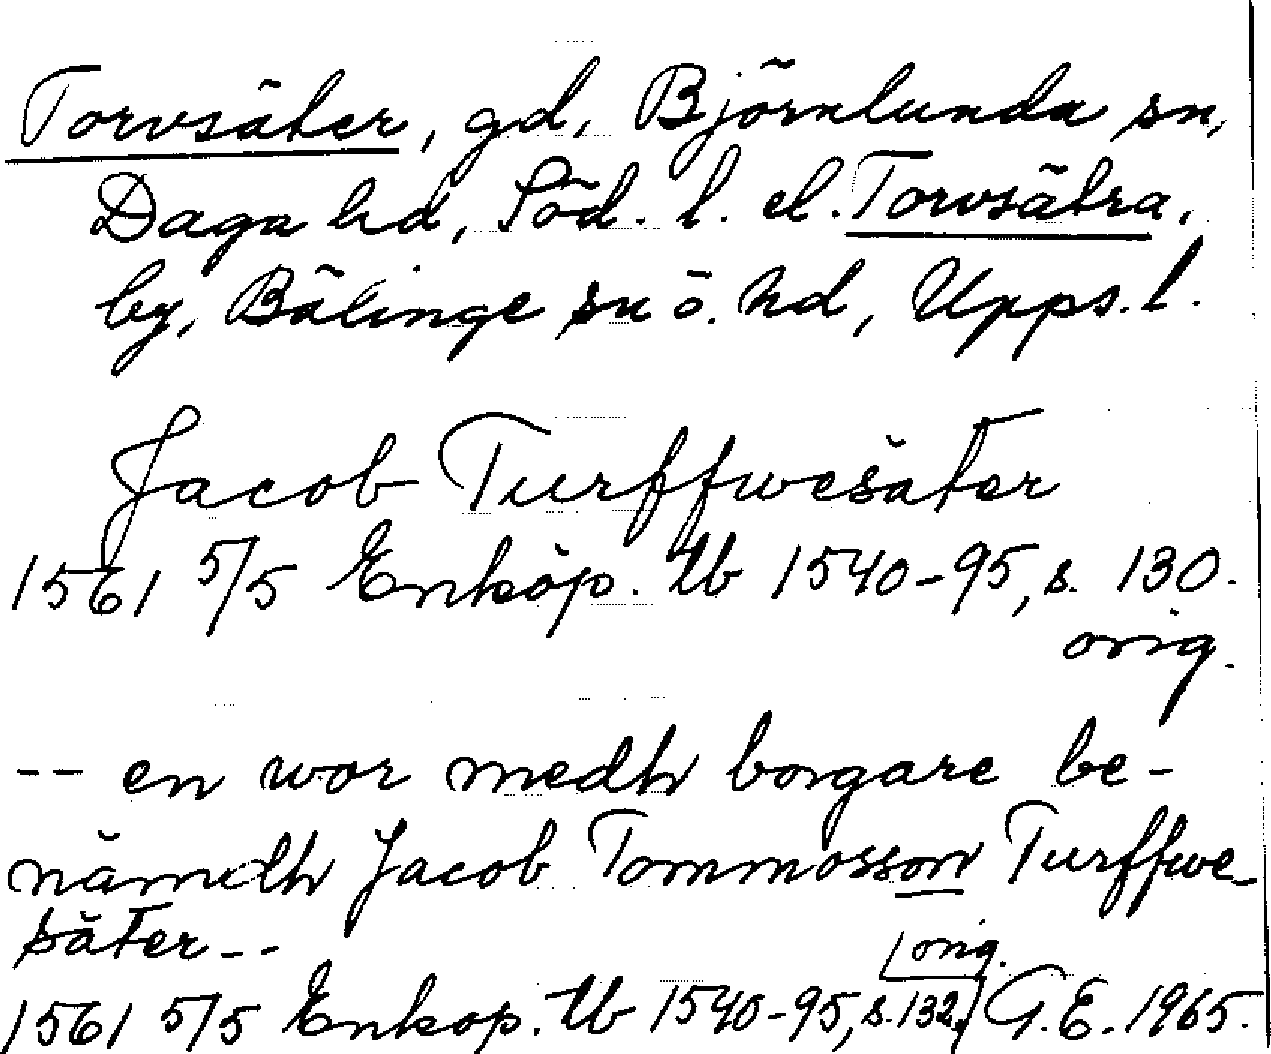 Torvsäter, gd, Björnlunda sn,
Daga hd, Söd. l. el. Torvsätra,
by, Bälinge sn o. hd, Upps. l.
Jacob Turffwesäter
1561 5/5 Enköp. tb 1540-95, s. 130.
orig.
-- en wor medh borgare be-
nämdh Jacob Tommosson Turffwe-
säter --
orig.
1561 5/5 Enkop. tb 1540-95, s. 132. G.E. 1965.